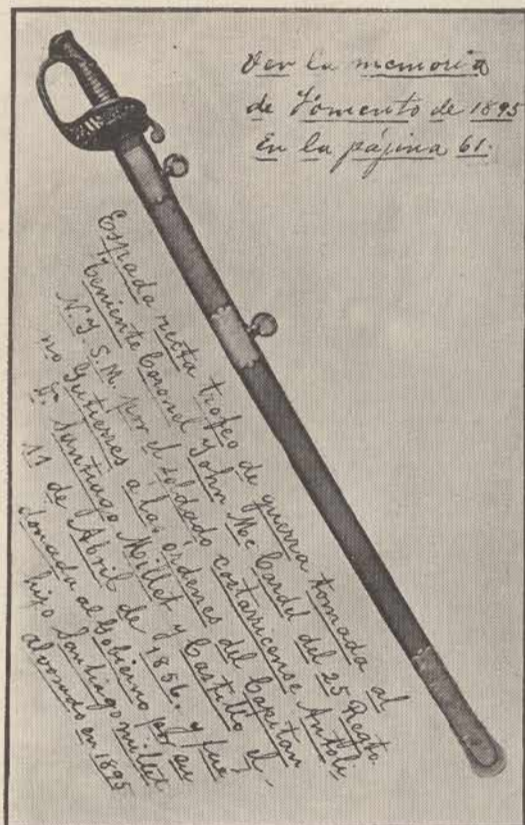 Ver la memoria
de Fomento de 1895
En la página 61.
Espada recta trofeo de guerra tomada al
Teniente Coronel John Mc Cardel del 25 Regto.
N.Y.S.M. por el soldado costarricense Antoli
no Gutierres a las ordenes del Capitan
Dn Santiago Millet y Castillo el
11 de Abril de 1856. y fué
donada al Gobierno por su
hijo Santiago millet
alvorado en 1895